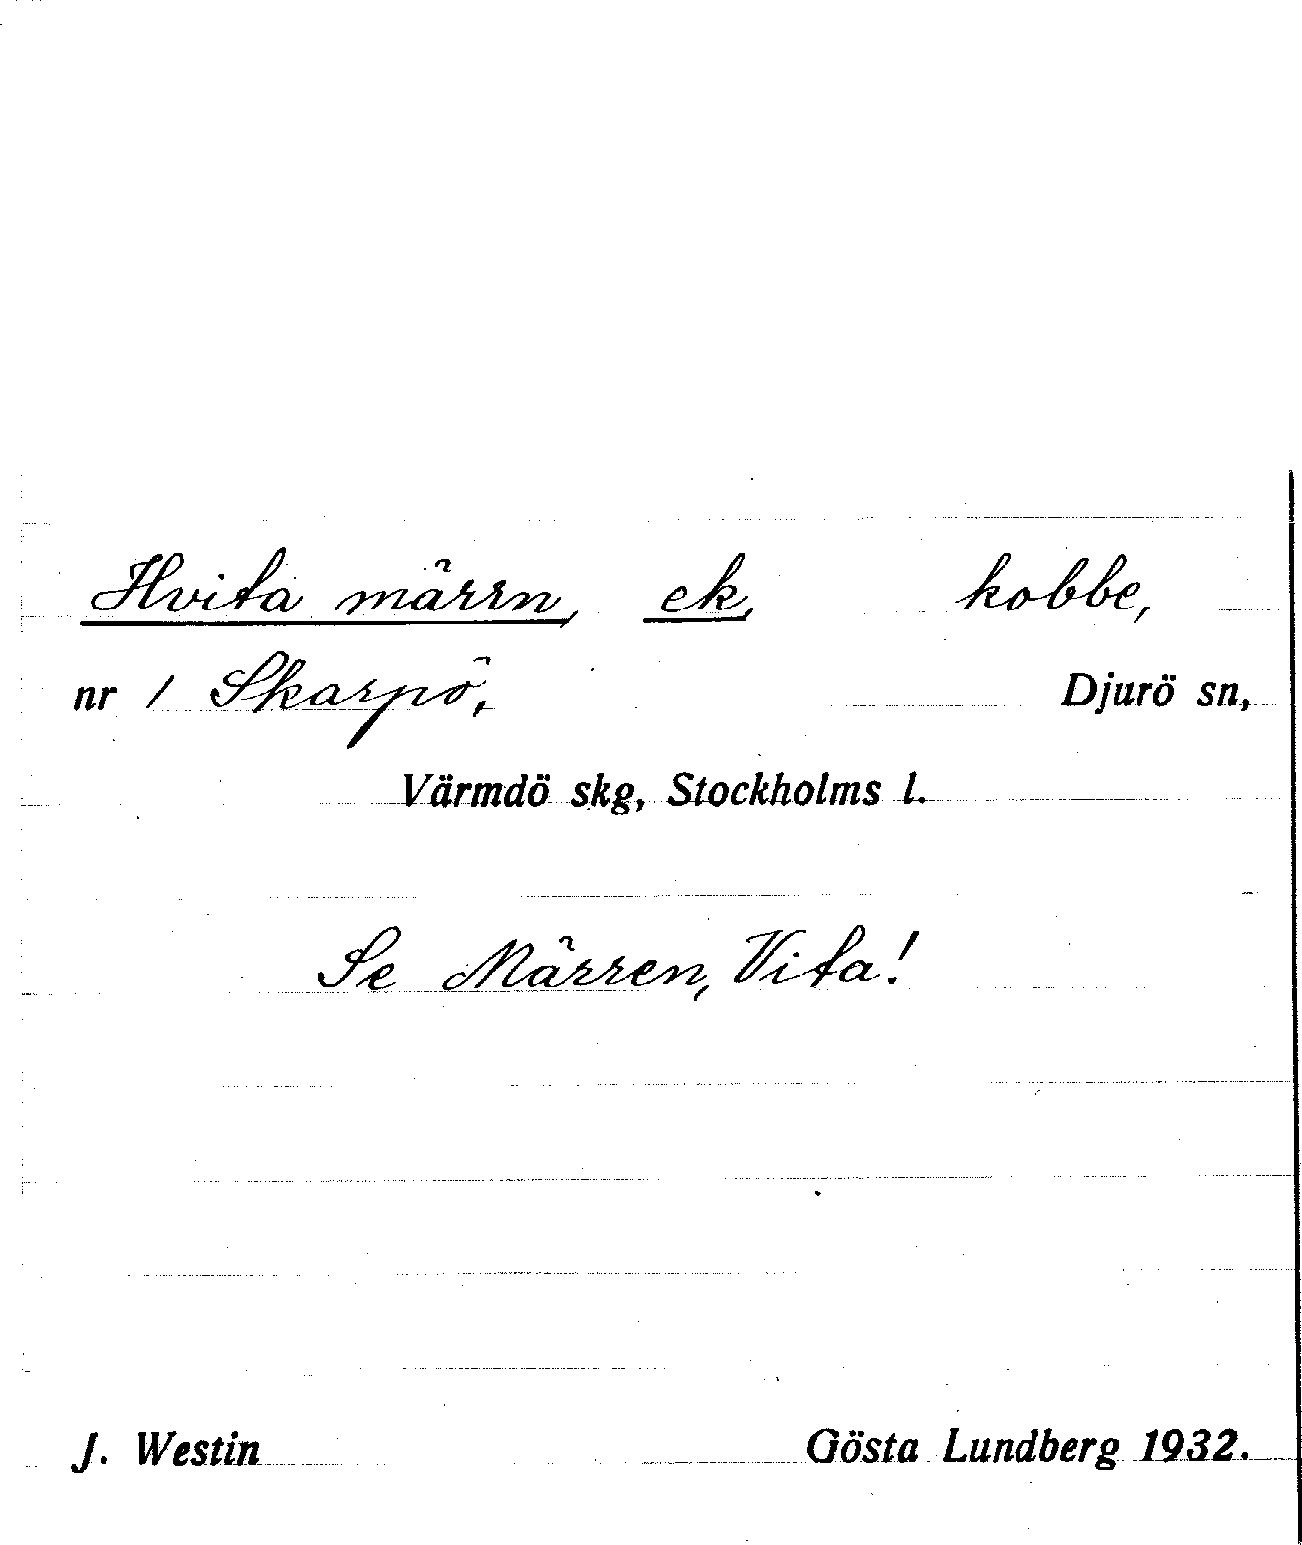 Hvita märrn, ek, kobbe,
nr 1 Skarpö, Djurö sn,
Värmdö skg, Stockholms l.
Se Märren, Vita!
J. Westin Gösta Lundberg 1932.